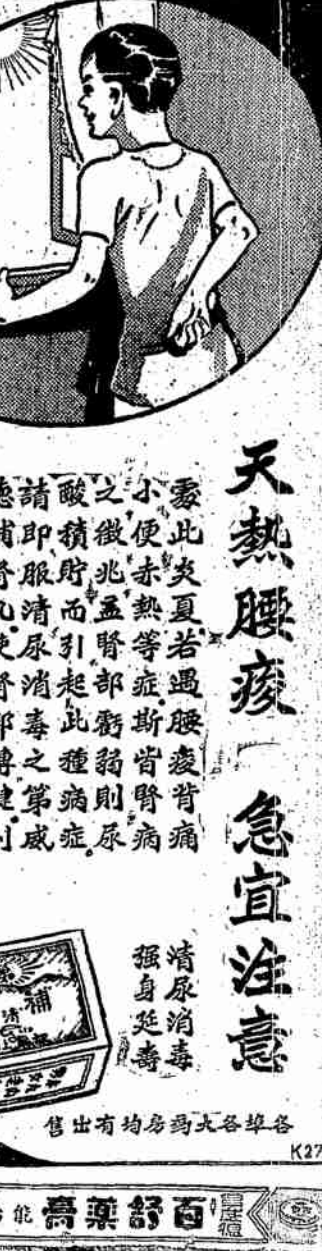 天熱腰痠 急宜注意
處此炎夏若遇腰痠背痛
小便赤熱等症斯皆腎病
之徵兆盖腎部虧弱則尿
酸積貯而引起此種病症
請即服清尿消毒之第威
德補腎丸
清尿消毒
强身延壽
補
各埠各大药房均有出售
K27
百舒藥膏
能